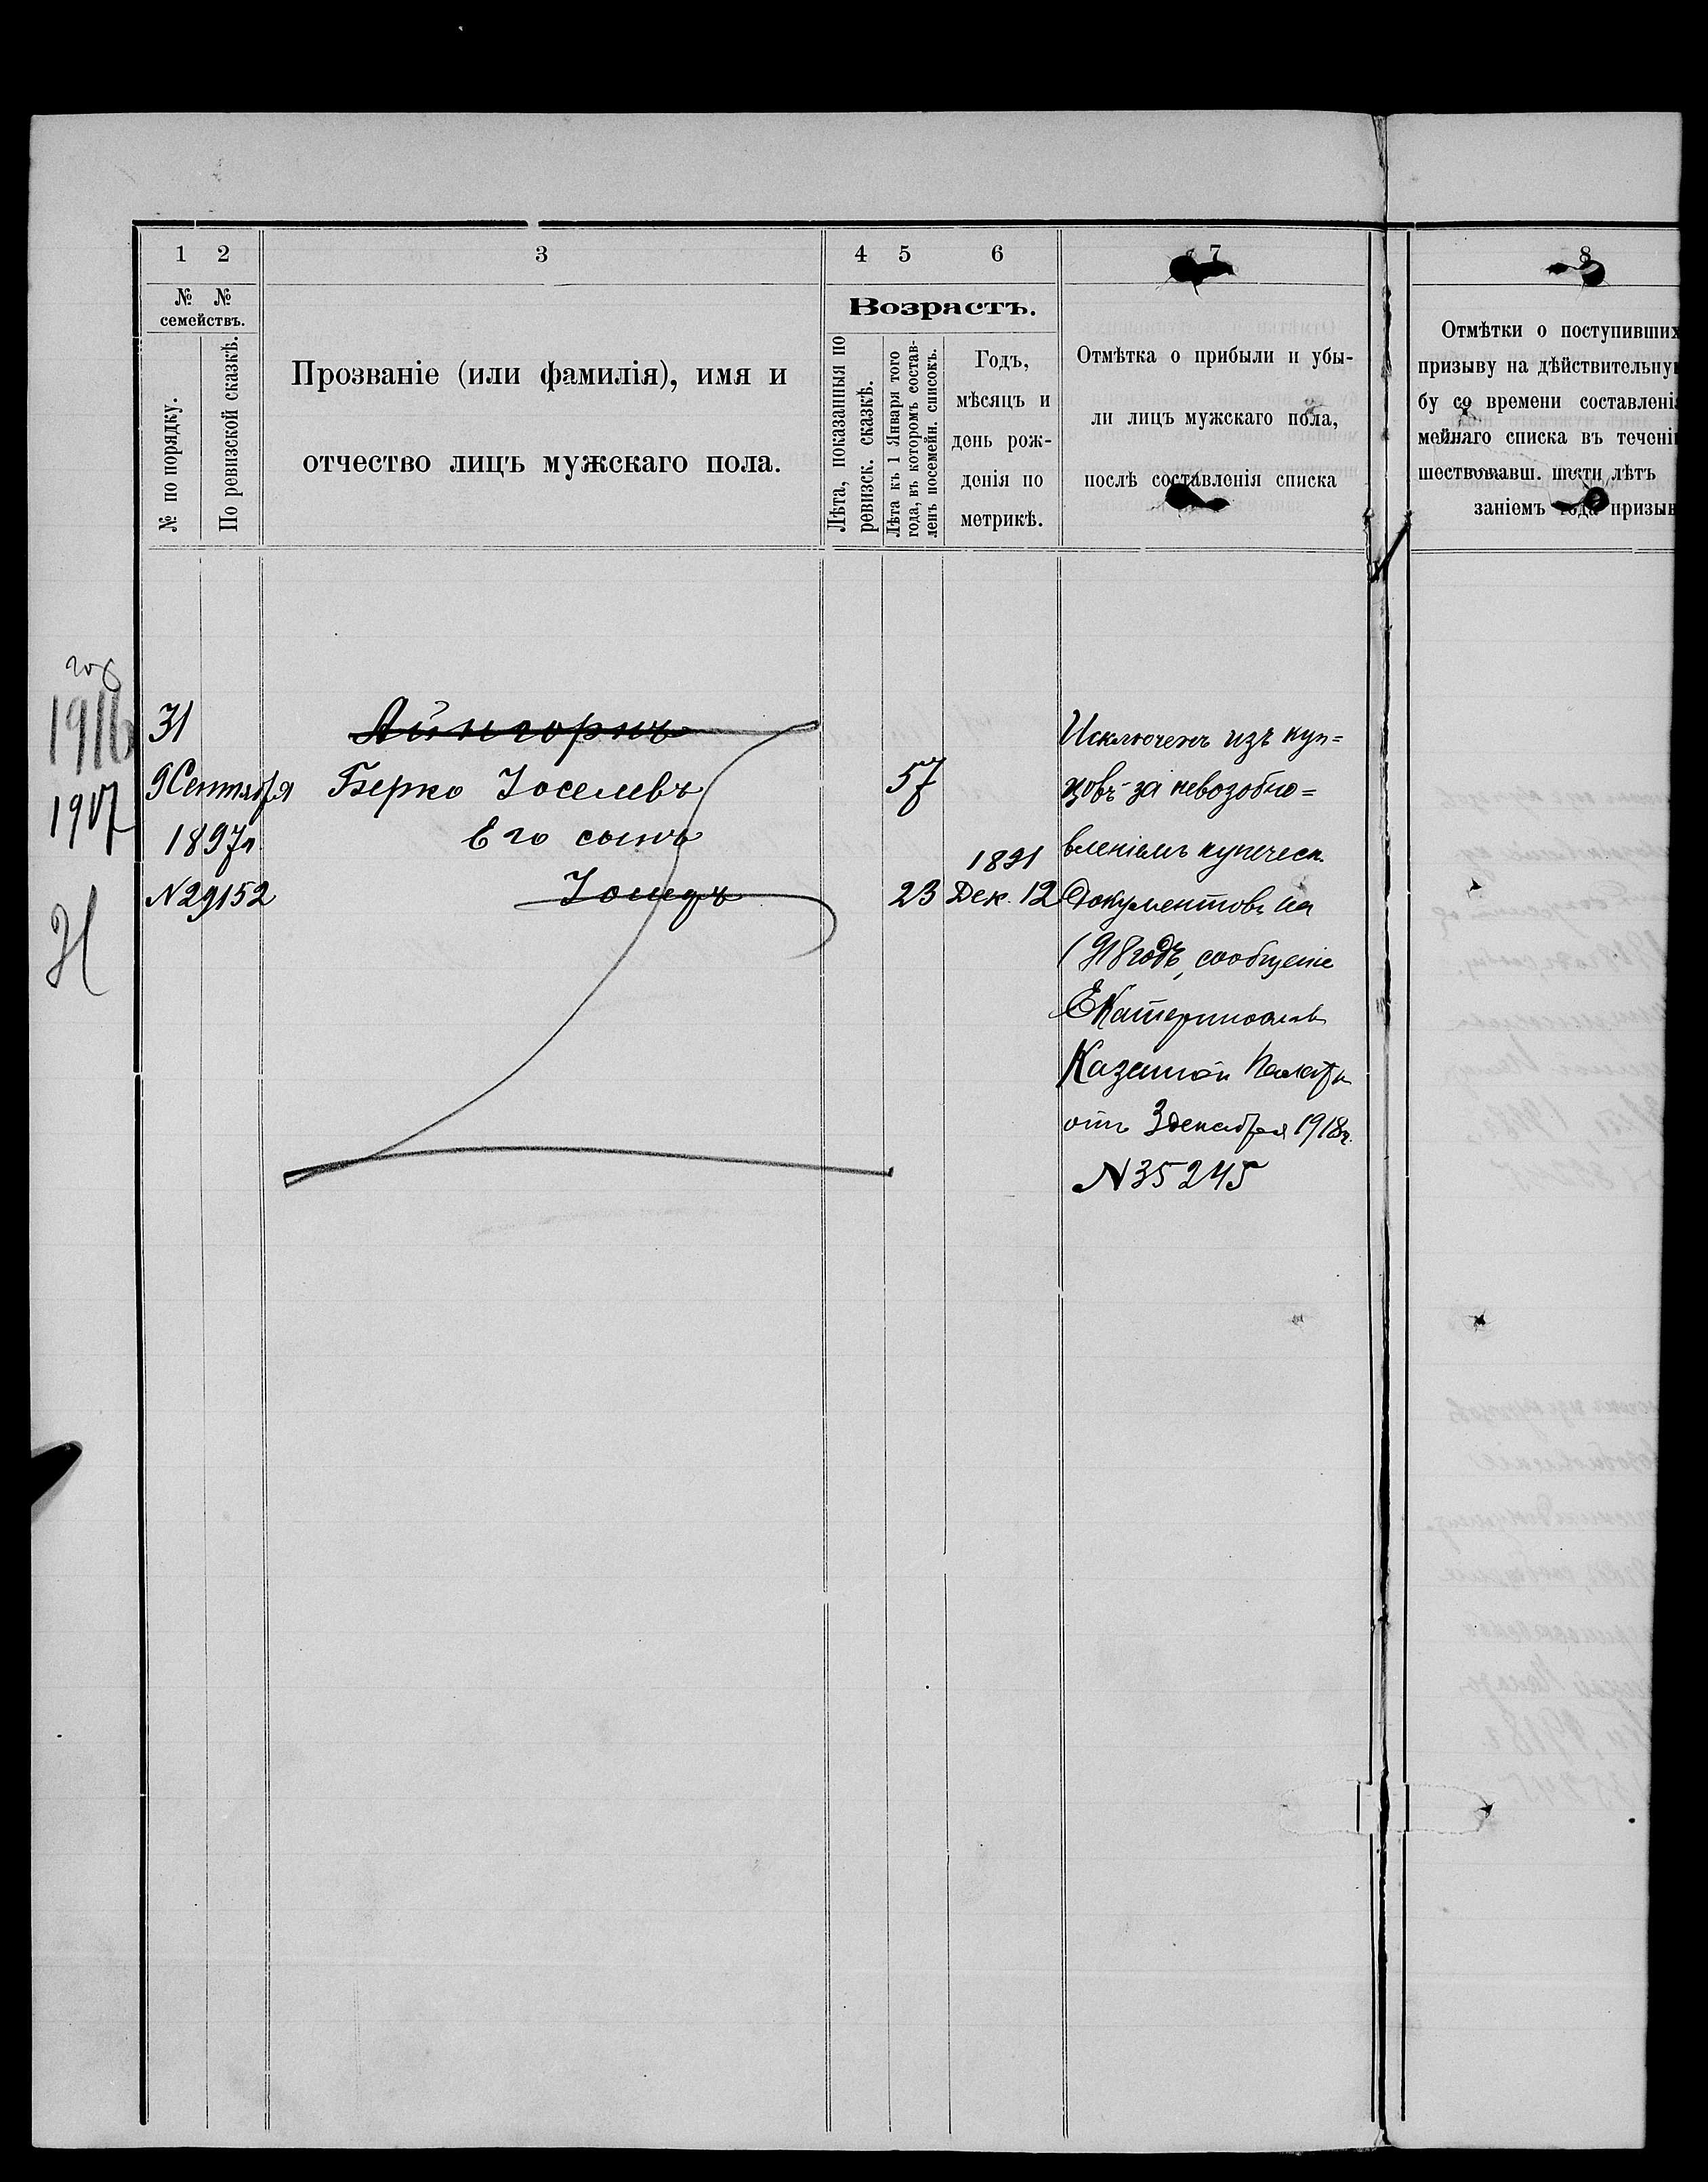 1 2 3 4 5 6 7 8
№ № семействъ.
№ по порядку.
По ревизской сказкѣ.
Прозваніе (или фамилія), имя и
отчество лицъ мужскаго пола.
Возрастъ.
Лѣта, показанныя по
ревизск. сказкѣ.
Лѣта къ 1 Января того
года, въ которомъ состав-
ленъ посемейн. списокъ.
Годъ,
мѣсяцъ и
день рож-
денія по
метрикѣ.
Отмѣтка о прибыли и убы-
ли лицъ мужскаго пола,
послѣ составленія списка
Отмѣтки о поступивших
призыву на дѣйствительну
бу со времени составлені
мейнаго списка въ течені
шествовавш. шести лѣтъ
заніемъ года призыв
1916
1917
31
9 Сентября
1897г
N29152
Айнгорнъ
Берко Іоселевъ 57
Его сынъ
1891
23 Дек. 12
Исключенъ изъ куп=
цовъ за невозобно=
вленіемъ купеческ.
документовъ на
1918 годъ, сообщеніе
Екатеринослав
Казенной Палаты
отъ 3 декабря 1918г.
N35245